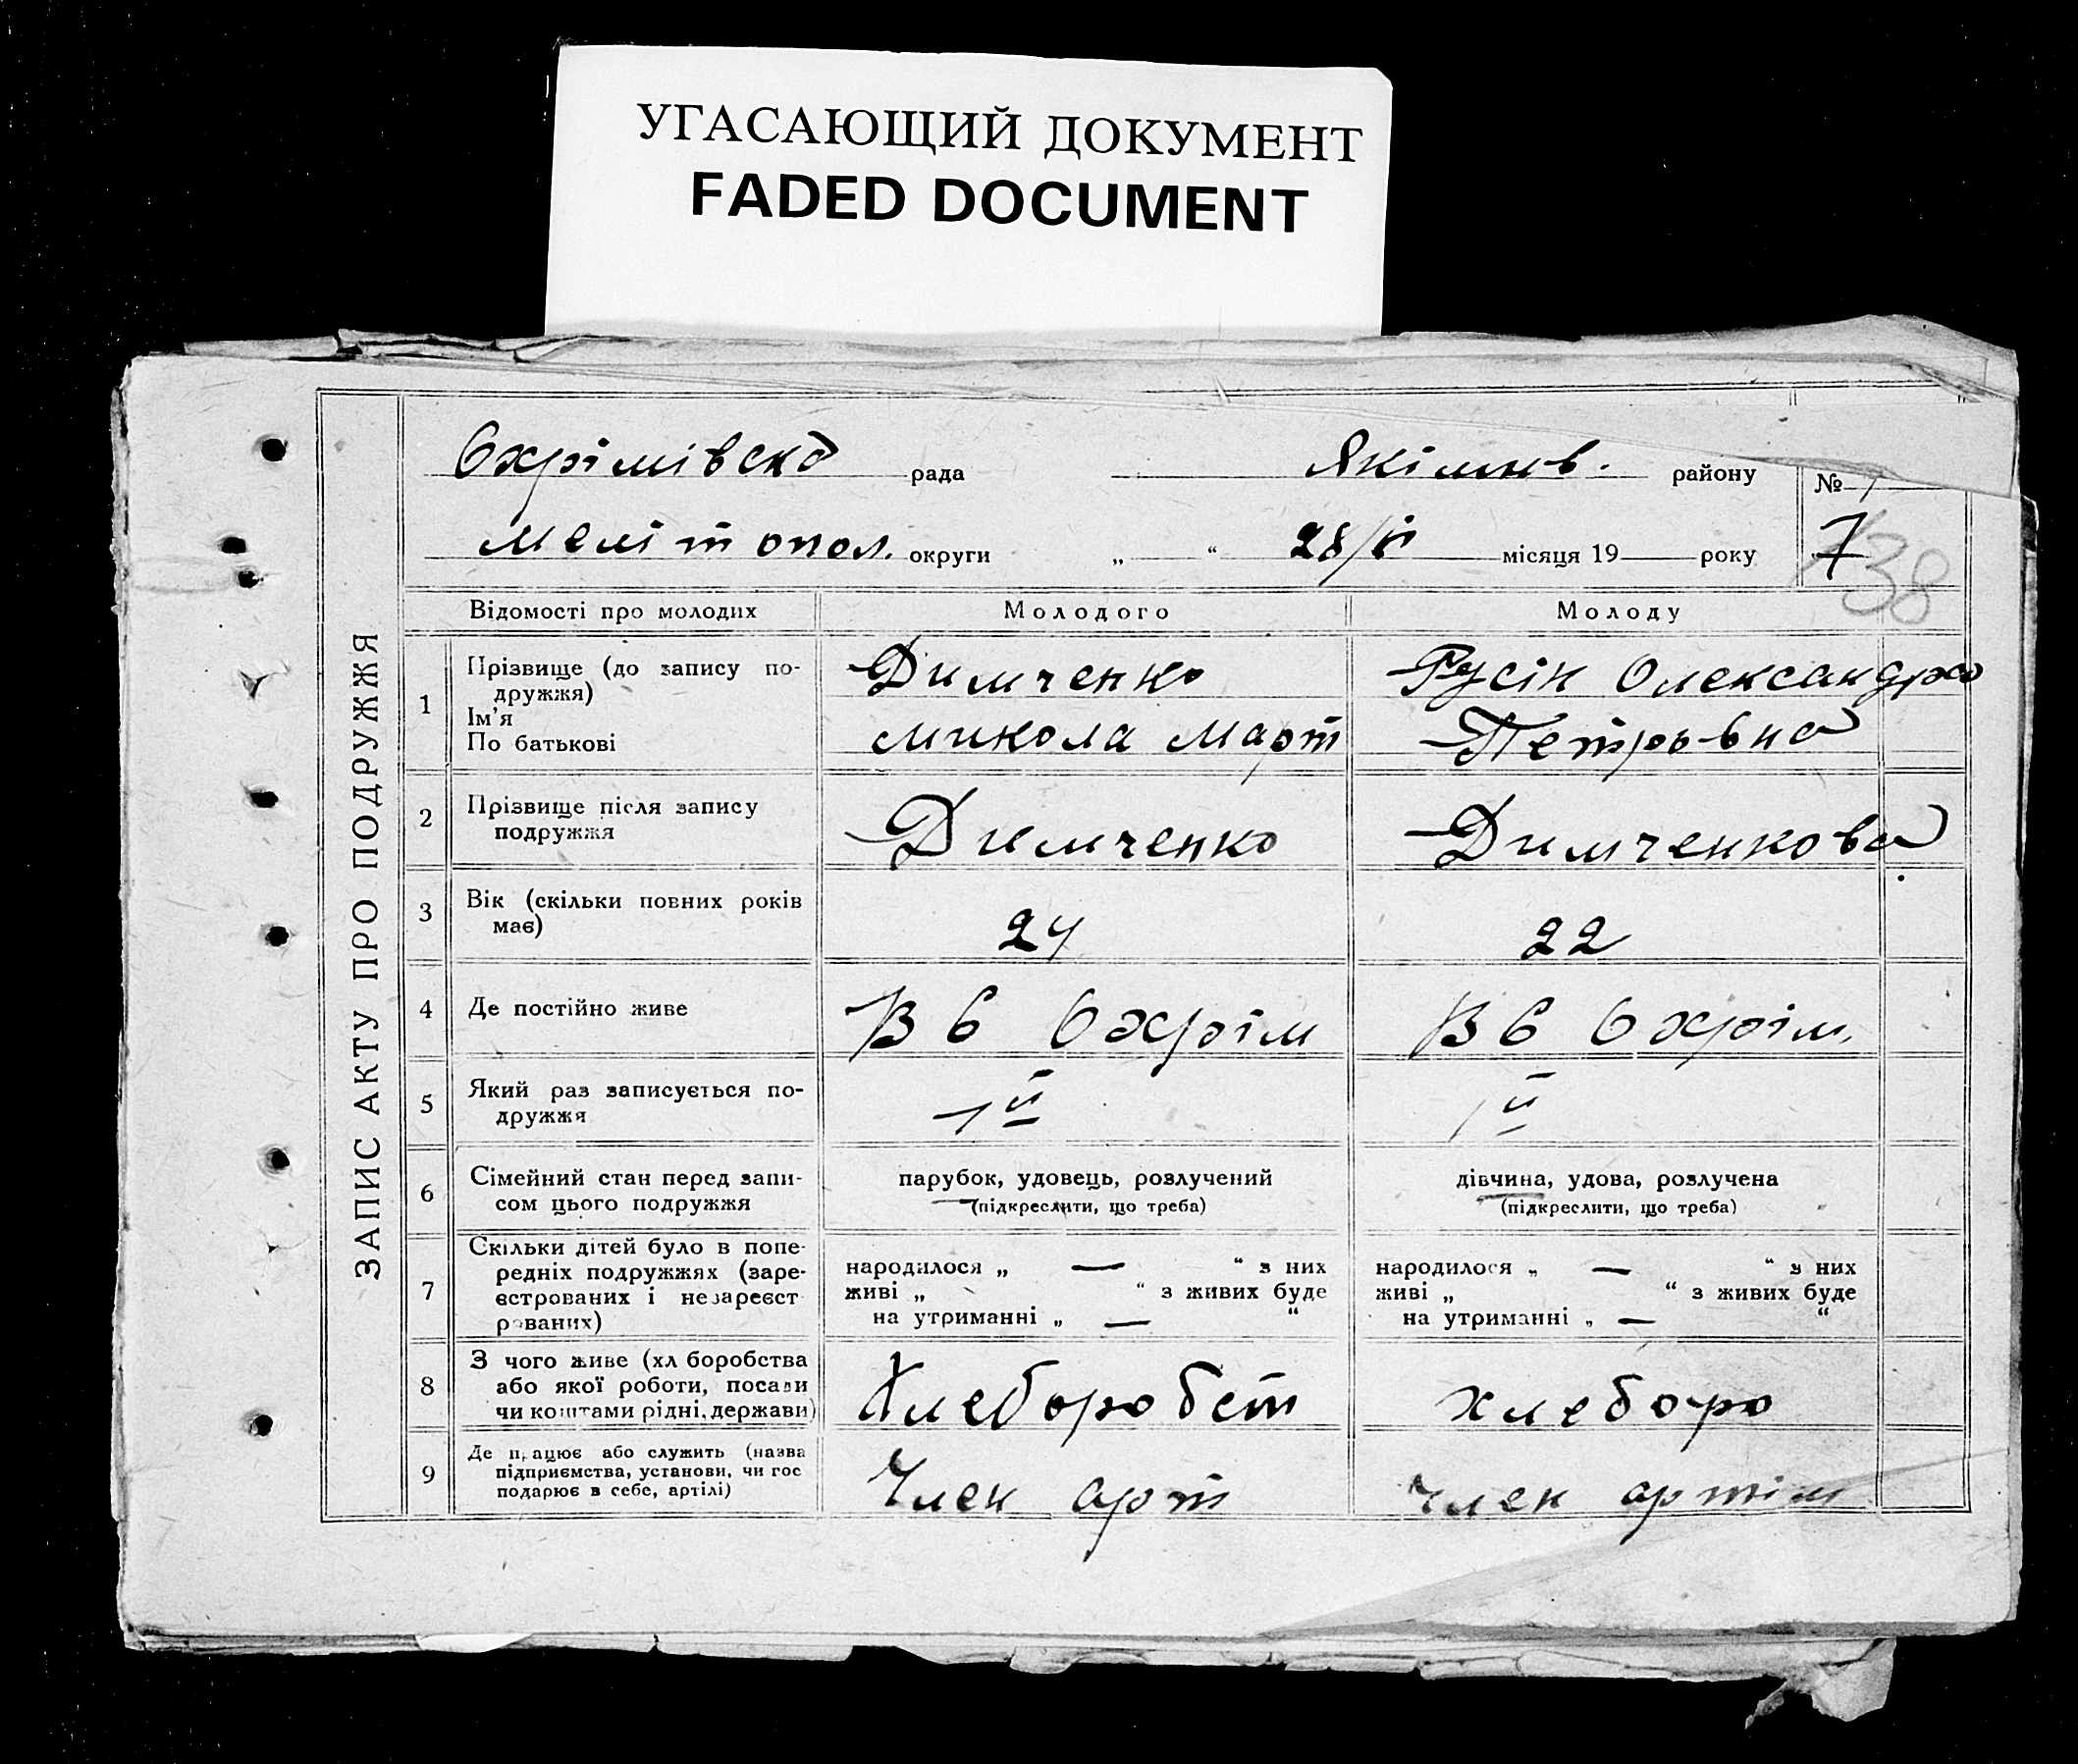 УГАСАЮЩИЙ ДОКУМЕНТ
FADED DOCUMENT
ЗАПИС АКТУ ПРО ПОДРУЖЖЯ
Охрімівска рада Якімів. району №
мелітопол. округи „ “ 28/ місяця 19 року 7
38
Відомості про молодих Молодого Молоду
1 Прізвище (до запису по-
дружжя)
Ім'я
По батькові
Димченко
микола март
Русін Олександра
Петровна
2 Прізвище після запису
подружжя
Димченко
Димченкова
3 Вік (скільки повних років
має)
24
22
4 Де постійно живе
В С Охрім
В С Охрім.
5 Який раз записується по-
дружжя
1й
1й
6 Сімейний стан перед запи-
сом цього подружжя
парубок, удовець, розлучений
(підкреслити, що треба)
дівчина, удова, розлучена
(підкреслити, що треба)
7 Скільки дітей було в попе-
редніх подружжях (заре-
єстрованих і незареєст
рованих)
народилося „ — “ з них
живі „ “ з живих буде
на утриманні „ — “
народилося „ — “ з них
живі „ “ з живих буде
на утриманні „ — “
8 З чого живе (хл боробства
або якої роботи, посади
чи коштами рідні, держави)
Хлеборобст
хлеборо
9 Де працює або служить (назва
підприємства, установи, чи гос
подарює в себе, артілі)
Член арт
Член артіл